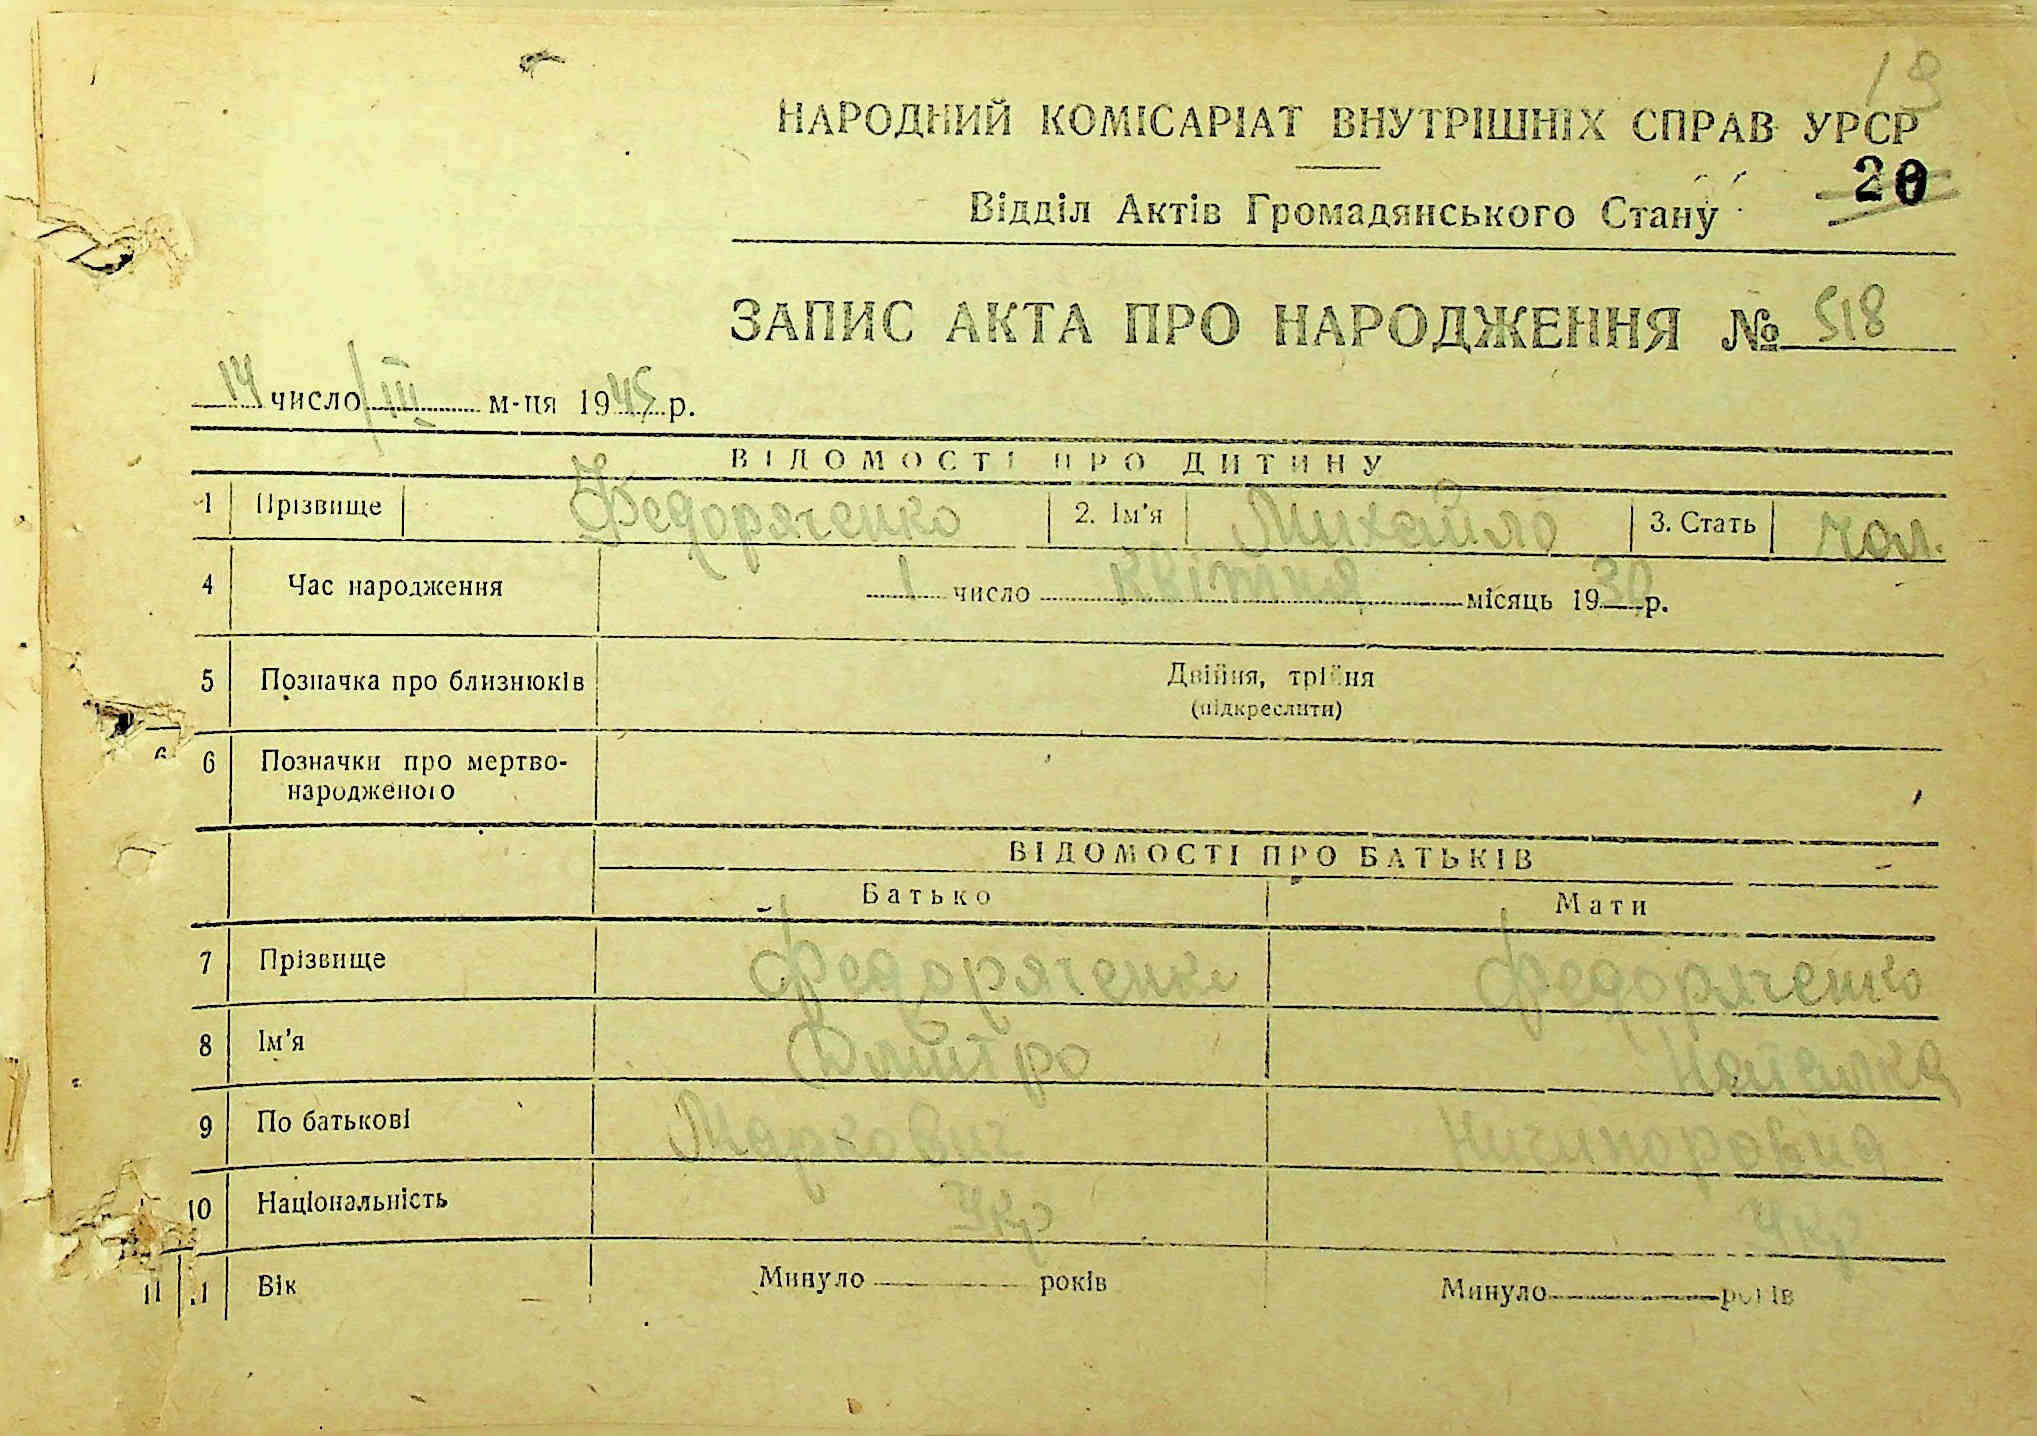 19
НАРОДНИЙ КОМІСАРІАТ ВНУТРІШНІХ СПРАВ УРСР
20
Відділ Актів Громадянського Стану
ЗАПИС АКТА ПРО НАРОДЖЕННЯ № 518
14 число III м-ця 1945 р.
ВІДОМОСТІ ПРО ДИТИНУ
1 Прізвище Федоряченко 2. Ім'я Михайло 3. Стать Чол.
4 Час народження 1 число квітня місяць 19 р.
5 Позначка про близнюків Двійня, трійня
(підкреслити)
6 Позначки про мертво-
народженого
ВІДОМОСТІ ПРО БАТЬКІВ
Батько Мати
7 Прізвище Федоряченко Федоряченко
8 Ім'я Дмитро Наталка
9 По батькові Маркович Ничипоровна
10 Національність Укр Укр
11 Вік Минуло років Минуло років